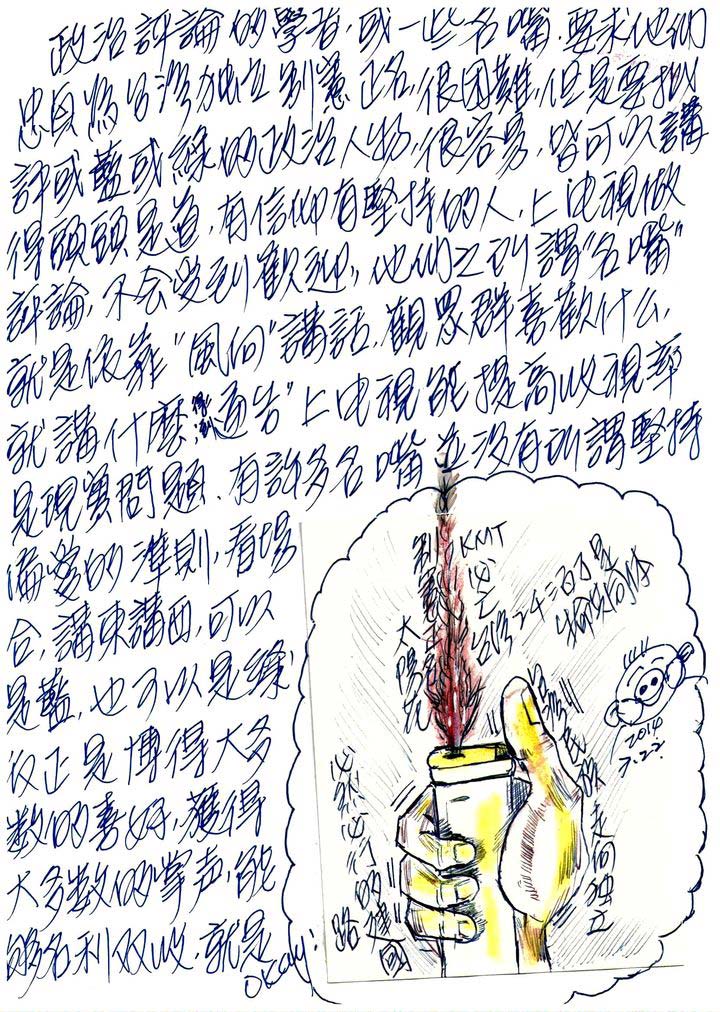 政治評論的學者，或一些名嘴，要求他們
忠貞為台灣独立制憲正名，很困難，但是要批
評或藍或綠的政治人物，很容易，皆可以講
得頭頭是道，有信仰有堅持的人，上电視做
評論，不会受到歡迎，他們之所謂"名嘴"
就是依靠"風向"講話，觀眾群喜歡什么，
就講什麼，上电視能提高收視率
是現實問題，有許多名嘴並没有所謂堅持
的準則，看場
合，講東講西，可以
是藍，也可以是綠，
反正是博得大多
數的喜好，獲得
大多數的掌声，能
够名利双收，就是
Okay!
KMT
必亡
制憲
台灣2千三百万是
生命共同体
台灣民族
走向独立
必然必行
的建國
路
2014
7.22.